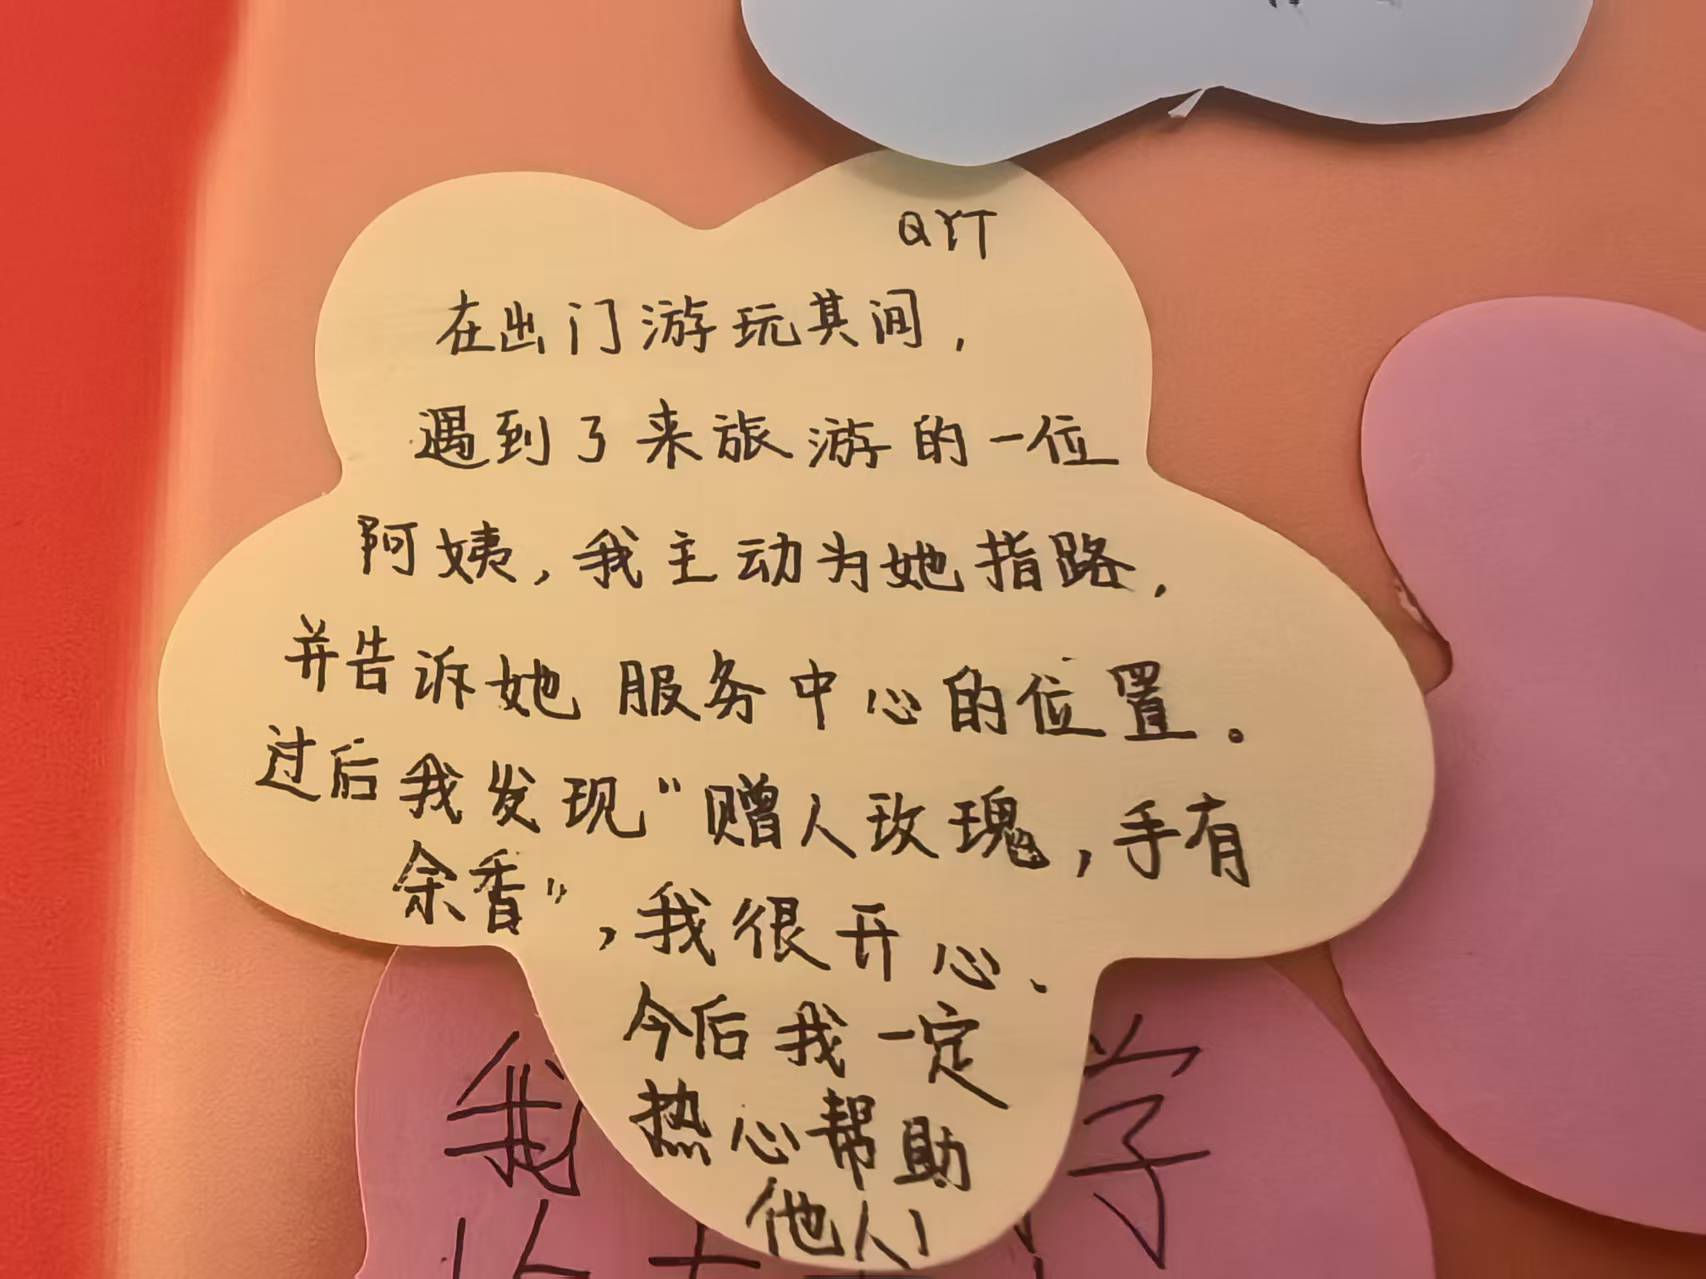 QYT
在出门游玩其间，
遇到了来旅游的一位
阿姨，我主动为她指路，
并告诉她服务中心的位置。
过后我发现“赠人玫瑰，手有
余香”，我很开心、
今后我一定
热心帮助
他人！
我
学